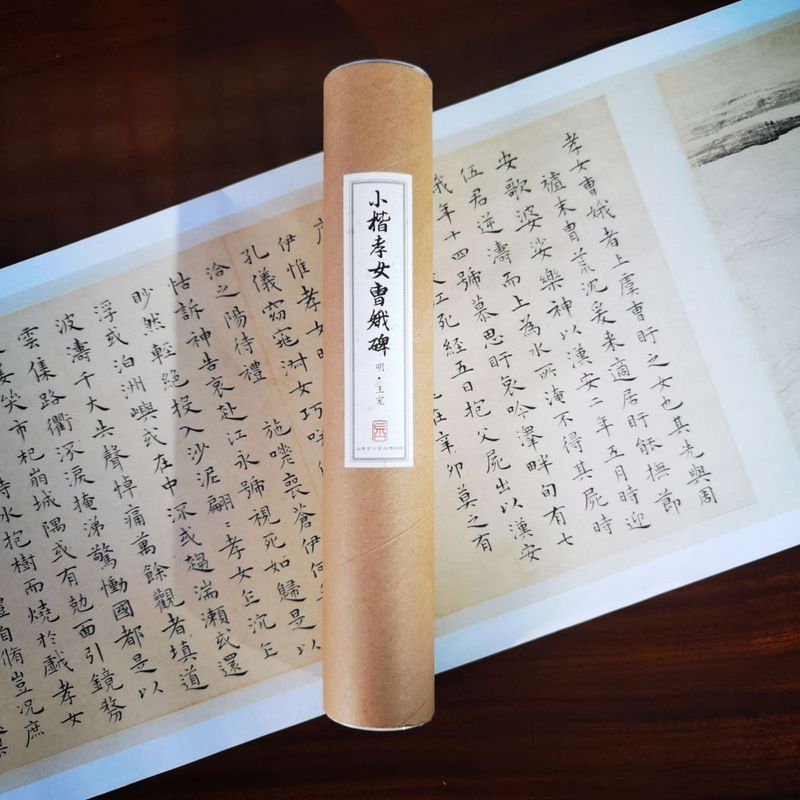 小楷孝女曹娥碑
明·王宠
孝女曹娥者上虞曹盱之女也其先與周
末曹荒沉爰来適居盱能撫節
安歌婆娑樂神以漢安二年五月時迎
伍君逆濤而上為水所淹不得其屍時
娥年十四號慕思盱哀吟澤畔旬有七
江死經五日抱父屍出以漢安
在辛卯莫之有
伊惟孝女
孔儀窈窕淑女巧咲
洽之陽待禮 施嗟喪蒼伊何
怙訴神告哀赴江永號視死如歸是以
眇然輕絶投入沙泥翩〻孝女乍沉乍
浮或泊洲嶼或在中流或趨湍瀨或還
波濤千夫共聲悼痛萬餘觀者填道
雲集路衢流淚掩涕驚慟國都是以
哀姜哭市杞崩城隅或有勊面引鏡剺
待水抱樹而燒於戲孝女
自脩豈况庶